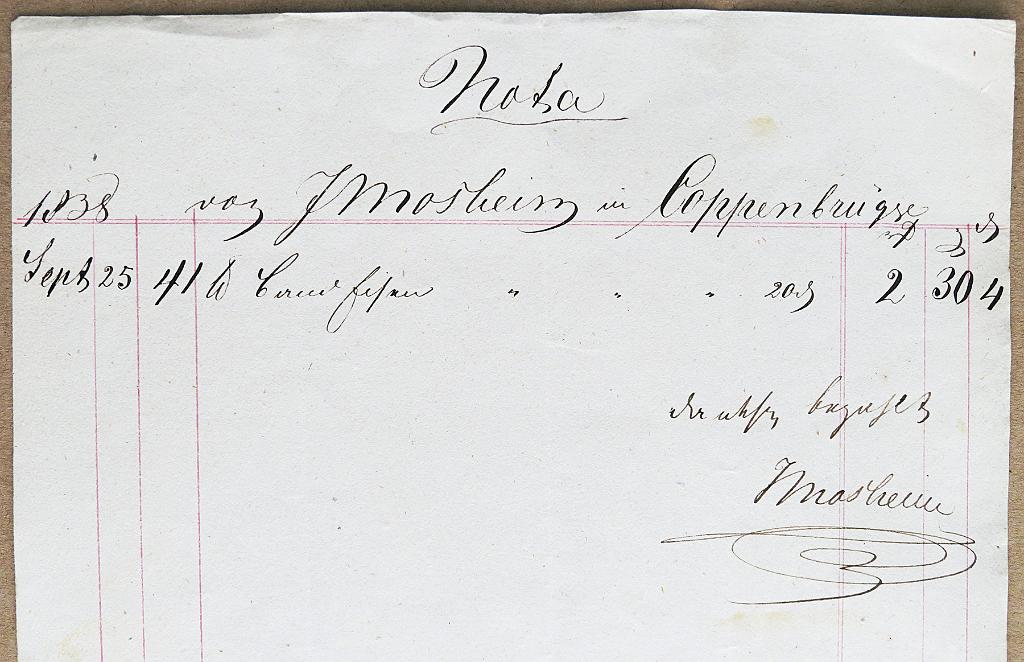 Nota
1838 von J Mosheim in Coppenbrügge
Sept 25 41 ℔ Band Eisen " " " 20 2 30 4
bezahlt
J Mosheim